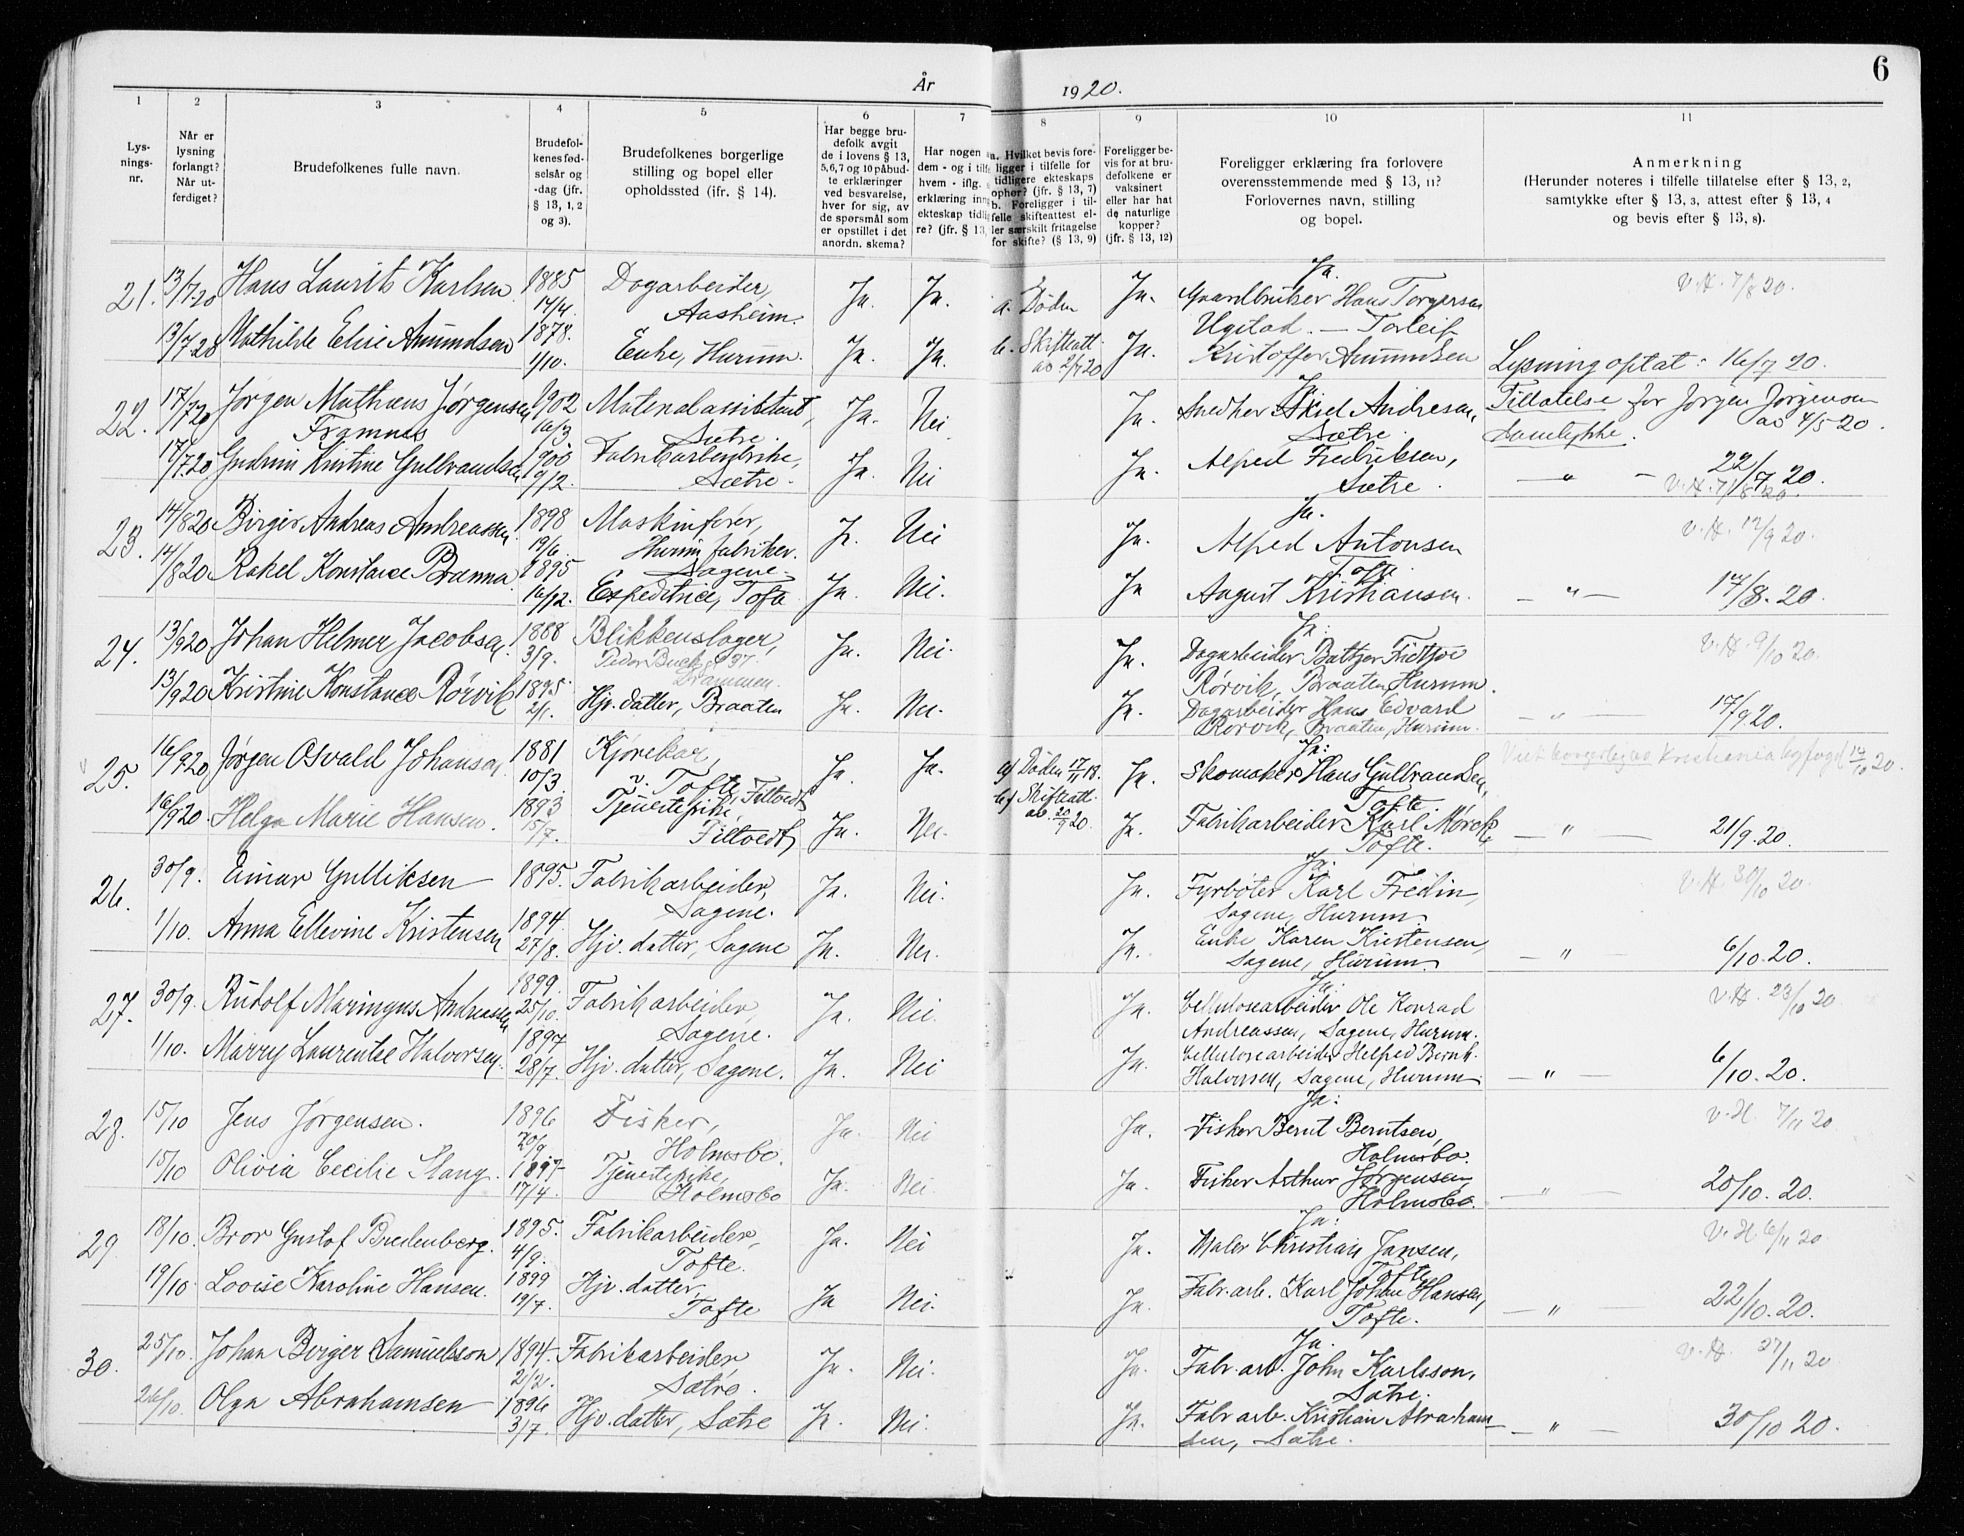 6
År 1920.
1 2 3 4 5 6 7 8 9 10 11
Lysningsnr.
Når er lysning forlangt? Når utferdiget?
Brudefolkenes fulle navn.
Brudefolkenes fødselsår og -dag (jfr. § 13, 1, 2 og 3).
Brudefolkenes borgerlige stilling og bopel eller opholdssted (ifr. § 14).
Har begge brudefolk avgit de i lovens § 13, 5,6,7 og 10 påbudte erklæringer ved besvarelse, hver for sig, av de spørsmål som er opstillet i det anordn. skema?
Har nogen dem - og i tilfe hvem - iflg. erklæring inn ekteskap tidlig re? (jfr. § 13,
a. Hvilket bevis foreligger i tilfelle for tidligere ekteskaps ophør? (jfr. § 13, 7) b. Foreligger i tilfelle skifteattest eller særskilt fritagelse for skifte? (§ 13, 9)
Foreligger bevis for at brudefolkene er vaksinert eller har hat de naturlige kopper? (jfr. § 13, 12)
Foreligger erklæring fra forlovere overensstemmende med § 13, 11? Forlovernes navn, stilling og bopel.
Anmerkning (Herunder noteres i tilfelle tillatelse efter § 13, 2, samtykke efter § 13, 3, attest efter § 13, 4 og bevis efter § 13, 8).
21. 13/7-20 Hans Laurits Karlsen 1885 14/4. Dagarbeider, Aasheim. Ja. Ja. a. Døden Ja. Ja. Gaardbruker Hans Torgersen Ugstad. – Torleif V.H. 7/8 20.
13/7 20 Mathilde Elise Amundsen 1878. 1/10. Enke, Hurum. Ja. Ja. b. Skifteatt. av 2/7 20 Ja. Kristoffer Amundsen Lysning optat: 16/7 20.
22. 17/7 20 Jørgen Mathæus Jørgensen Framnæs 1902 16/3 Materialassistent, Sætre. Ja. Nei Ja. Ja. Snedker Aksel Andresen, Sætre. Tillatelse for Jørgen Jørgensen av 4/5-20. Samtykke.
17/7.20 Gudrun Kristine Gulbrandsen 1900 19/2. Fabrikarbeiderske, Sætre. Ja. Nei Ja. Alfred Fredriksen, Sætre. – " – 22/7 20. V.H. 7/8 20.
23. 14/8 20 Birger Andreas Andreassen. 1898 19/6. Maskinfører, Hurum fabriker. Sagene. Ja. Nei Ja. Ja. Alfred Antonsen Tofte V.H. 12/9 20.
14/8 20 Rakel Konstance Bramna. 1895 16/12. Expeditrice, Tofte Ja. Nei. Ja August Kristiansen. – " – 17/8. 20.
24. 13/9 20 Johan Helmer Jacobsen. 1888 3/9. Blikkenslager, Drammen. Ja. Nei. Ja. Ja: Dagarbeider Rørvik, Braaten, Hurum. V.H. 9/10 20.
13/9 20 Kristine Konstance Rørvik 1895. 2/1. Hjv. datter, Braaten Ja. Nei. Ja. Dagarbeider Hans Edvard Rørvik, Braaten, Hurum. – " – 17/9 20.
25. 16/9 20 Jørgen Osvald Johansen 1881 10/3. Kjørekar, v. Tofte, Filtvedt Ja. Ja. a) Døden 17/11 18. Ja. Ja: Skomaker Hans Gulbrandsen, Tofte. Kristiania byfogd 16/10 20.
16/9 20 Helga Marie Hansen. 1893 15/7. Tjenestepike, Filtvedt Ja. Nei. b) Skifteatt. av. 20/9 20. Ja. Fabrikarbeider Karl Mørck Tofte. – " – 21/9. 20.
26. 30/9. Einar Gulliksen 1895. Fabrikarbeider, Sagene. Ja. Nei. Ja. Ja. Fyrbøter Karl Fredin, Sagene, Hurum. V.H. 30/10 20.
1/10. Anna Ellevine Kristensen 1894. 27/8. Hjv. datter, Sagene Ja. Nei. Ja. Enke Karen Kristensen, Sagene, Hurum. – " – 6/10. 20.
27. 30/9. Rudolf Maringus Andreassen 1899. 25/10. Fabrikarbeider, Sagene. Ja. Nei. Ja. Ja: Cellulosearbeider Ole Konrad Andreassen, Sagene, Hurum. V.H. 23/10 20
1/10. Marry Laurentse Halvorsen. 1897 28/7. Hjv. datter, Sagene. Ja. Nei Ja. Cellulosearbeider Helfred Bernh. Halvorsen, Sagene, Hurum. – " – 6/10. 20.
28. 15/10 Jens Jørgensen. 1896 20/9. Fisker, Holmsbo. Ja. Nei Ja. Ja: Fisker Bernt Berntsen, Holmsbo. V.H. 7/11 20
15/10 Olivia Cecilie Stang. 1897 17/4. Tjenestepike, Holmsbo Ja. Nei. Ja. Fisker Arthur Jørgensen, Holmsbo. – " – 20/10. 20.
29. 18/10. Bror Gustof Bredenberg. 1895. 4/9. Fabrikarbeider, Tofte. Ja. Nei Ja. Ja: Maler Christian Jansen, Tofte V.H. 6/11 20
19/10. Lovise Karoline Hansen. 1899 19/7. Hjv. datter, Tofte Ja Nei. Ja. Fabr. arb. Karl Johan Hansen, Tofte. – " – 22/10. 20.
30. 25/10. Johan Birger Samuelsson 1894. 2/2. Fabrikarbeider Sætre. Ja. Nei. Ja. Ja. Fabr. arb. John Karlsson, Sætre. V.H. 27/11 20
26/10. Olga Abrahamsen 1896 3/7. Hjv. datter, Sætre Ja. Nei. Ja. Fabr arb. Kristian Abrahamsen, Sætre. – " – 30/10 20.